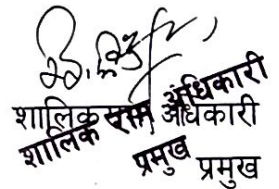 शालिक राम अधिकारी
शालिक राम अधिकारी
प्रमुख
प्रमुख